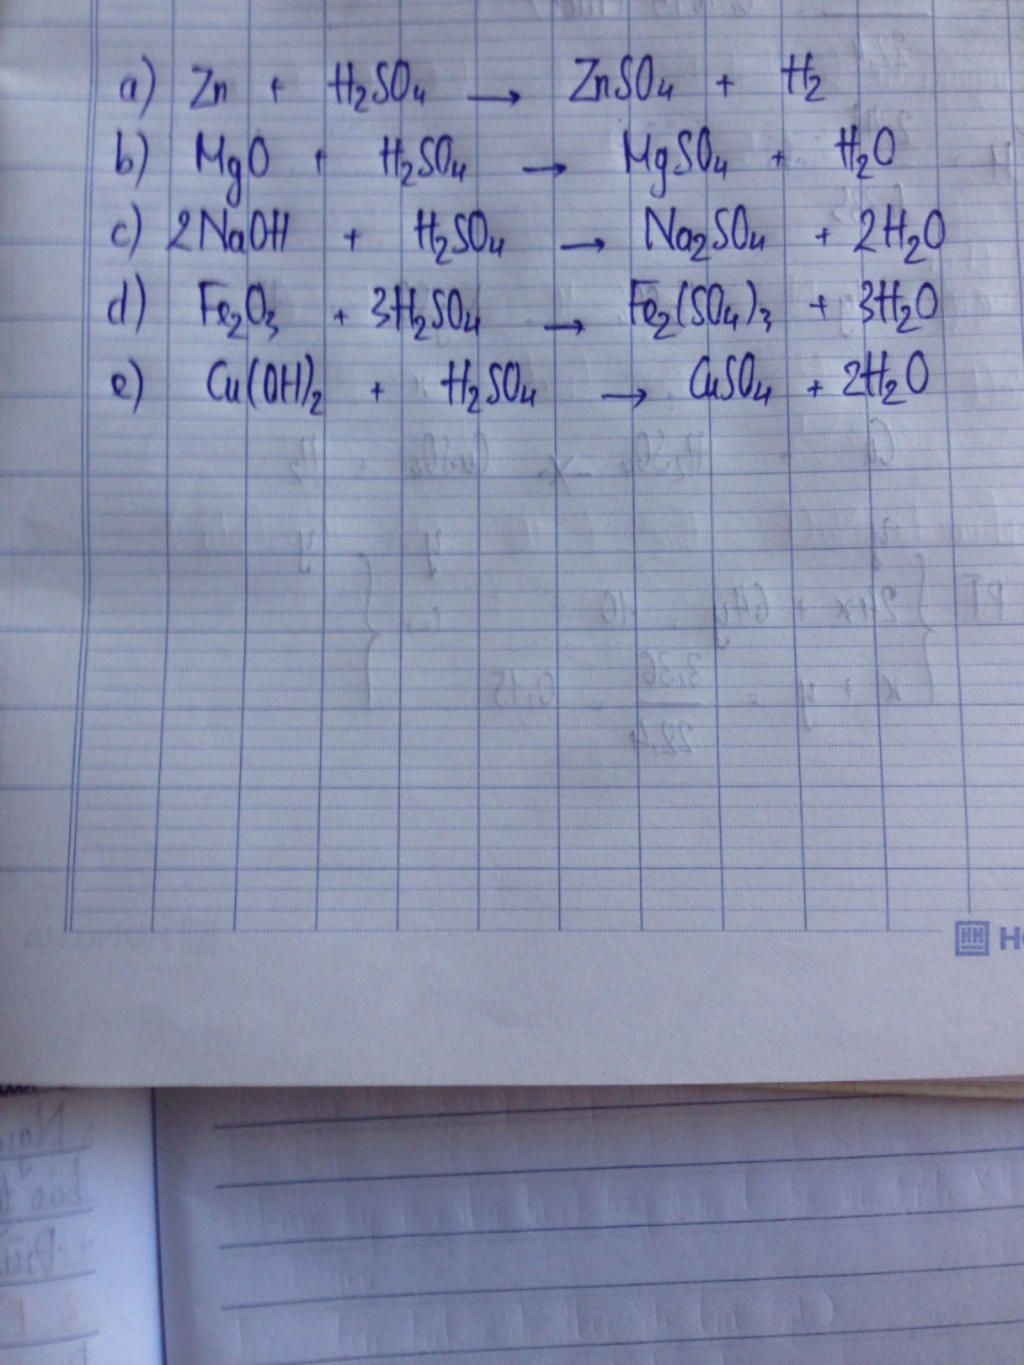 a) Zn + H₂SO₄ → ZnSO₄ + H₂
b) MgO + H₂SO₄ → MgSO₄ + H₂O
c) 2NaOH + H₂SO₄ → Na₂SO₄ + 2H₂O
d) Fe₂O₃ + 3H₂SO₄ → Fe₂(SO₄)₃ + 3H₂O
e) Cu(OH)₂ + H₂SO₄ → CuSO₄ + 2H₂O
HH